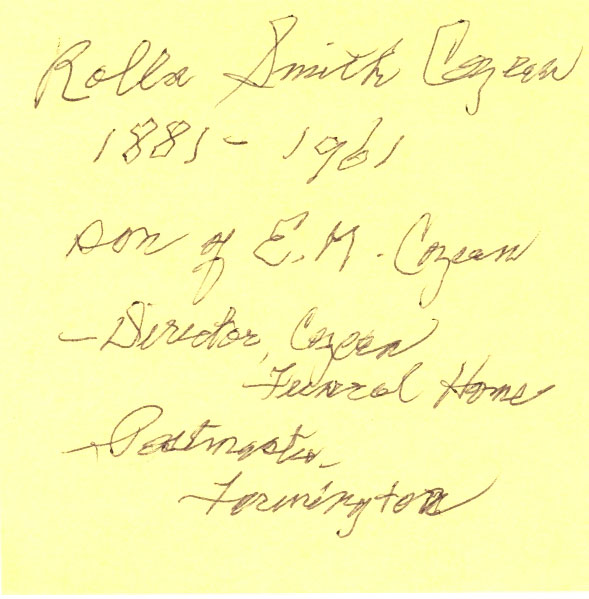 Rolla Smith Cozean
1881 - 1961
son of E. M. Cozean
- Director, Cozean
Funeral Home
- Postmaster
Farmington